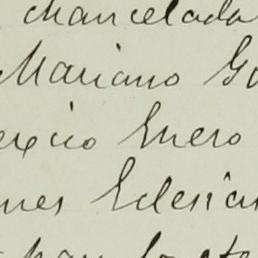 chancelada
Mariano Go
exico Enero
nes Eclesia